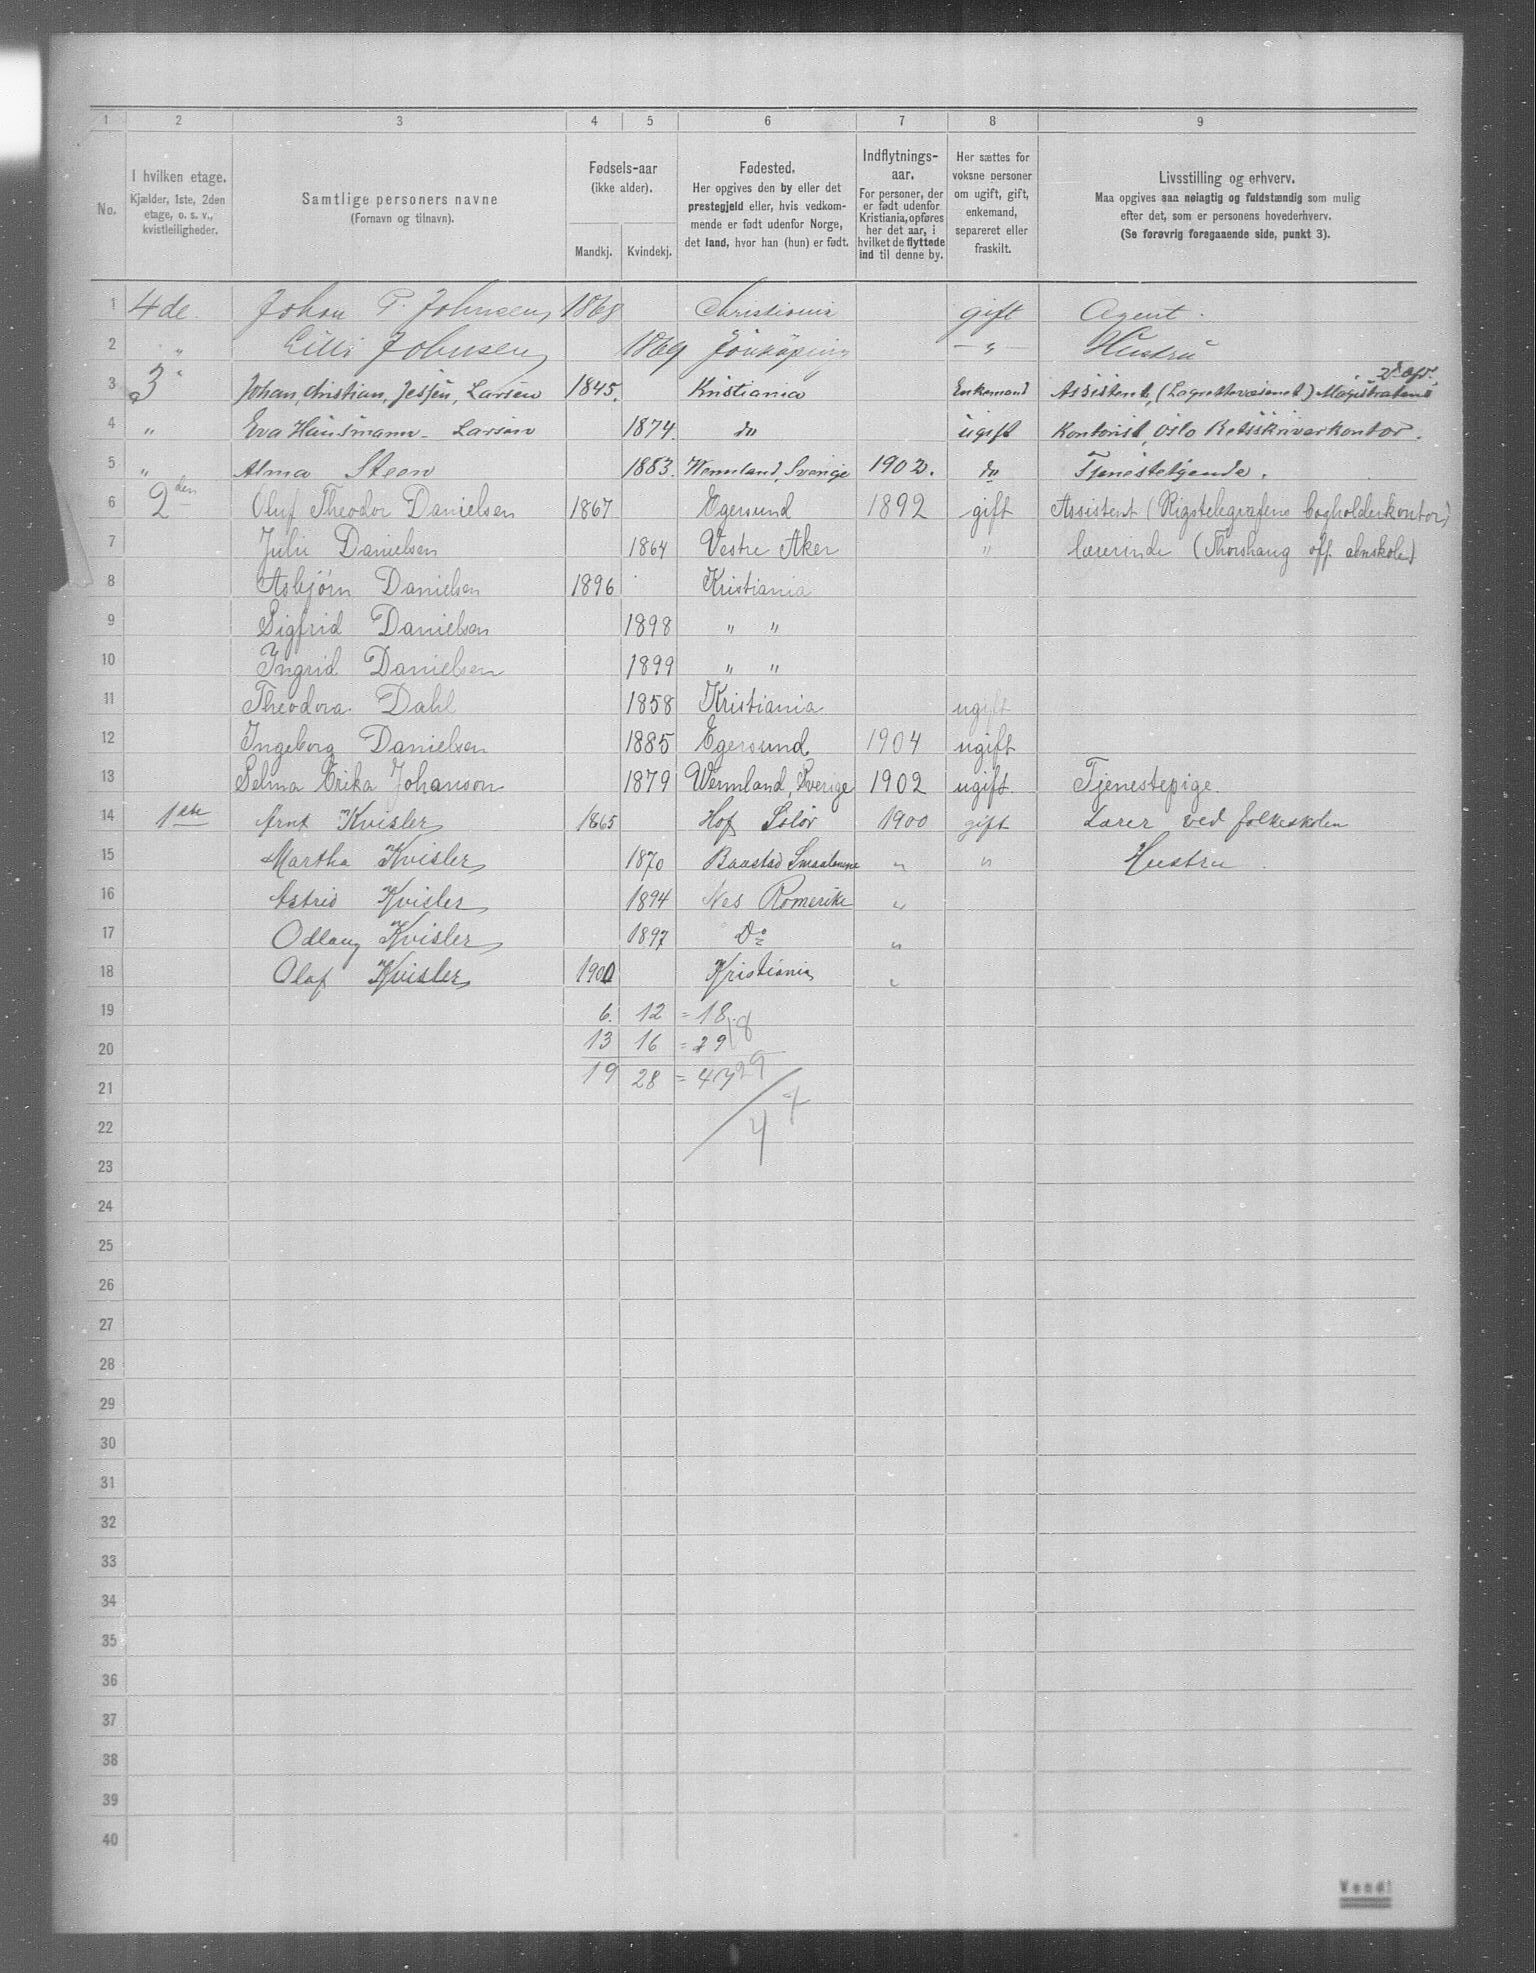 1 2 3 4 5 6 7 8 9
No.
I hvilken etage.
Kjælder, 1ste, 2den
etage, o. s. v.,
kvistleiligheder.
Samtlige personers navne
(Fornavn og tilnavn).
Fødsels-aar
(ikke alder).
Mandkj. Kvindekj.
Fødested.
Her opgives den by eller det
prestegjeld eller, hvis vedkom-
mende er født udenfor Norge,
det land, hvor han (hun) er født.
Indflytnings-
aar.
For personer, der
er født udenfor
Kristiania, opføres
her det aar, i
hvilket de flyttede
ind til denne by.
Her sættes for
voksne personer
om ugift, gift,
enkemand,
separeret eller
fraskilt.
Livsstilling og erhverv.
Maa opgives saa nøiagtig og fuldstændig som mulig
efter det, som er personens hovederhverv.
(Se forøvrig foregaaende side, punkt 3).
1 4de Johan P. Johnsen 1868 Christiania gift Agent.
2 " Lilli Johnsen 1869 Jönköping " Hustru
2. afd.
3 3 " Johan, Christian, Jessen, Larsen 1845. Kristiania Enkemand Assistent, (Lagrettevæsenet) Magistratens
4 " Eva Hausmann-Larsen 1874. do ugift Kontorist, Oslo Retsskriverkontor.
5 " Alma Steen 1883. Wermland, Sverige 1902. do Tjenestetgende.
6 2den Oluf Theodor Danielsen 1867 Egersund 1892 gift Assistent (Rigstelegrafens bogholderkontor)
7 Julie Danielsen 1864 Vestre Aker " lærerinde (Thorshaug off. alnskole)
8 Asbjørn Danielsen 1896 Kristiania
9 Sigfrid Danielsen 1898 " "
10 Ingrid Danielsen 1899 " "
11 Theodora Dahl 1858 Kristiania ugift
12 Ingeborg Danielsen 1885 Egersund 1904 ugift
13 Selma Erika Johanson 1879 Wermland, Sverige 1902 ugift. Tjenestepige.
14 1ste Arnt Kvisler 1865 Hof Solør 1900 gift Lærer ved folkeskolen
15 Martha Kvisler 1870 Baastad Smaalenene " " Hustru.
16 Astrid Kvisler 1894 Nes Romerike "
17 Odlaug Kvisler 1897 Do "
18 Olaf Kvisler 1900 Kristiania "
19 6. 12 = 18. 18
20 13 16 = 29 29
21 19 28 = 47
22 47
23
24
25
26
27
28
29
30
31
32
33
34
35
36
37
38
39
40
Vend!